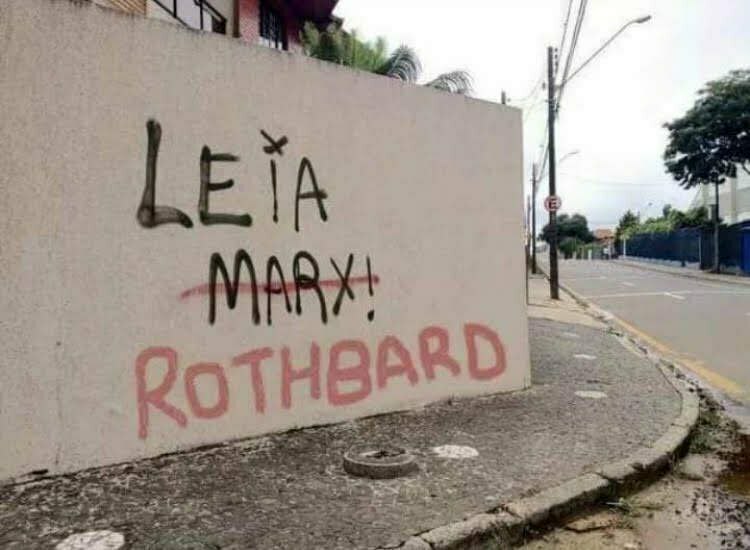 LEIA
MARX!
ROTHBARD